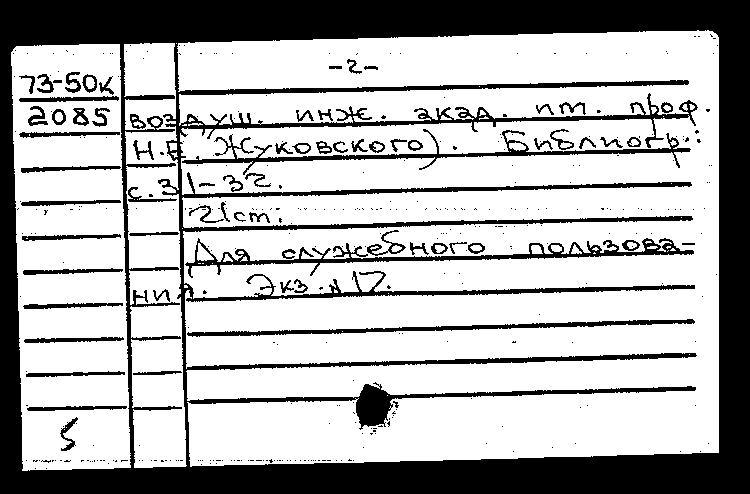 -2-
73-50к
2085 воздуш. инж. акад. им. проф.
Н.Е. Жуковского). Библиогр.:
с. 31-32.
21см.
Для служебного пользова-
ния. Экз. № 17.
5